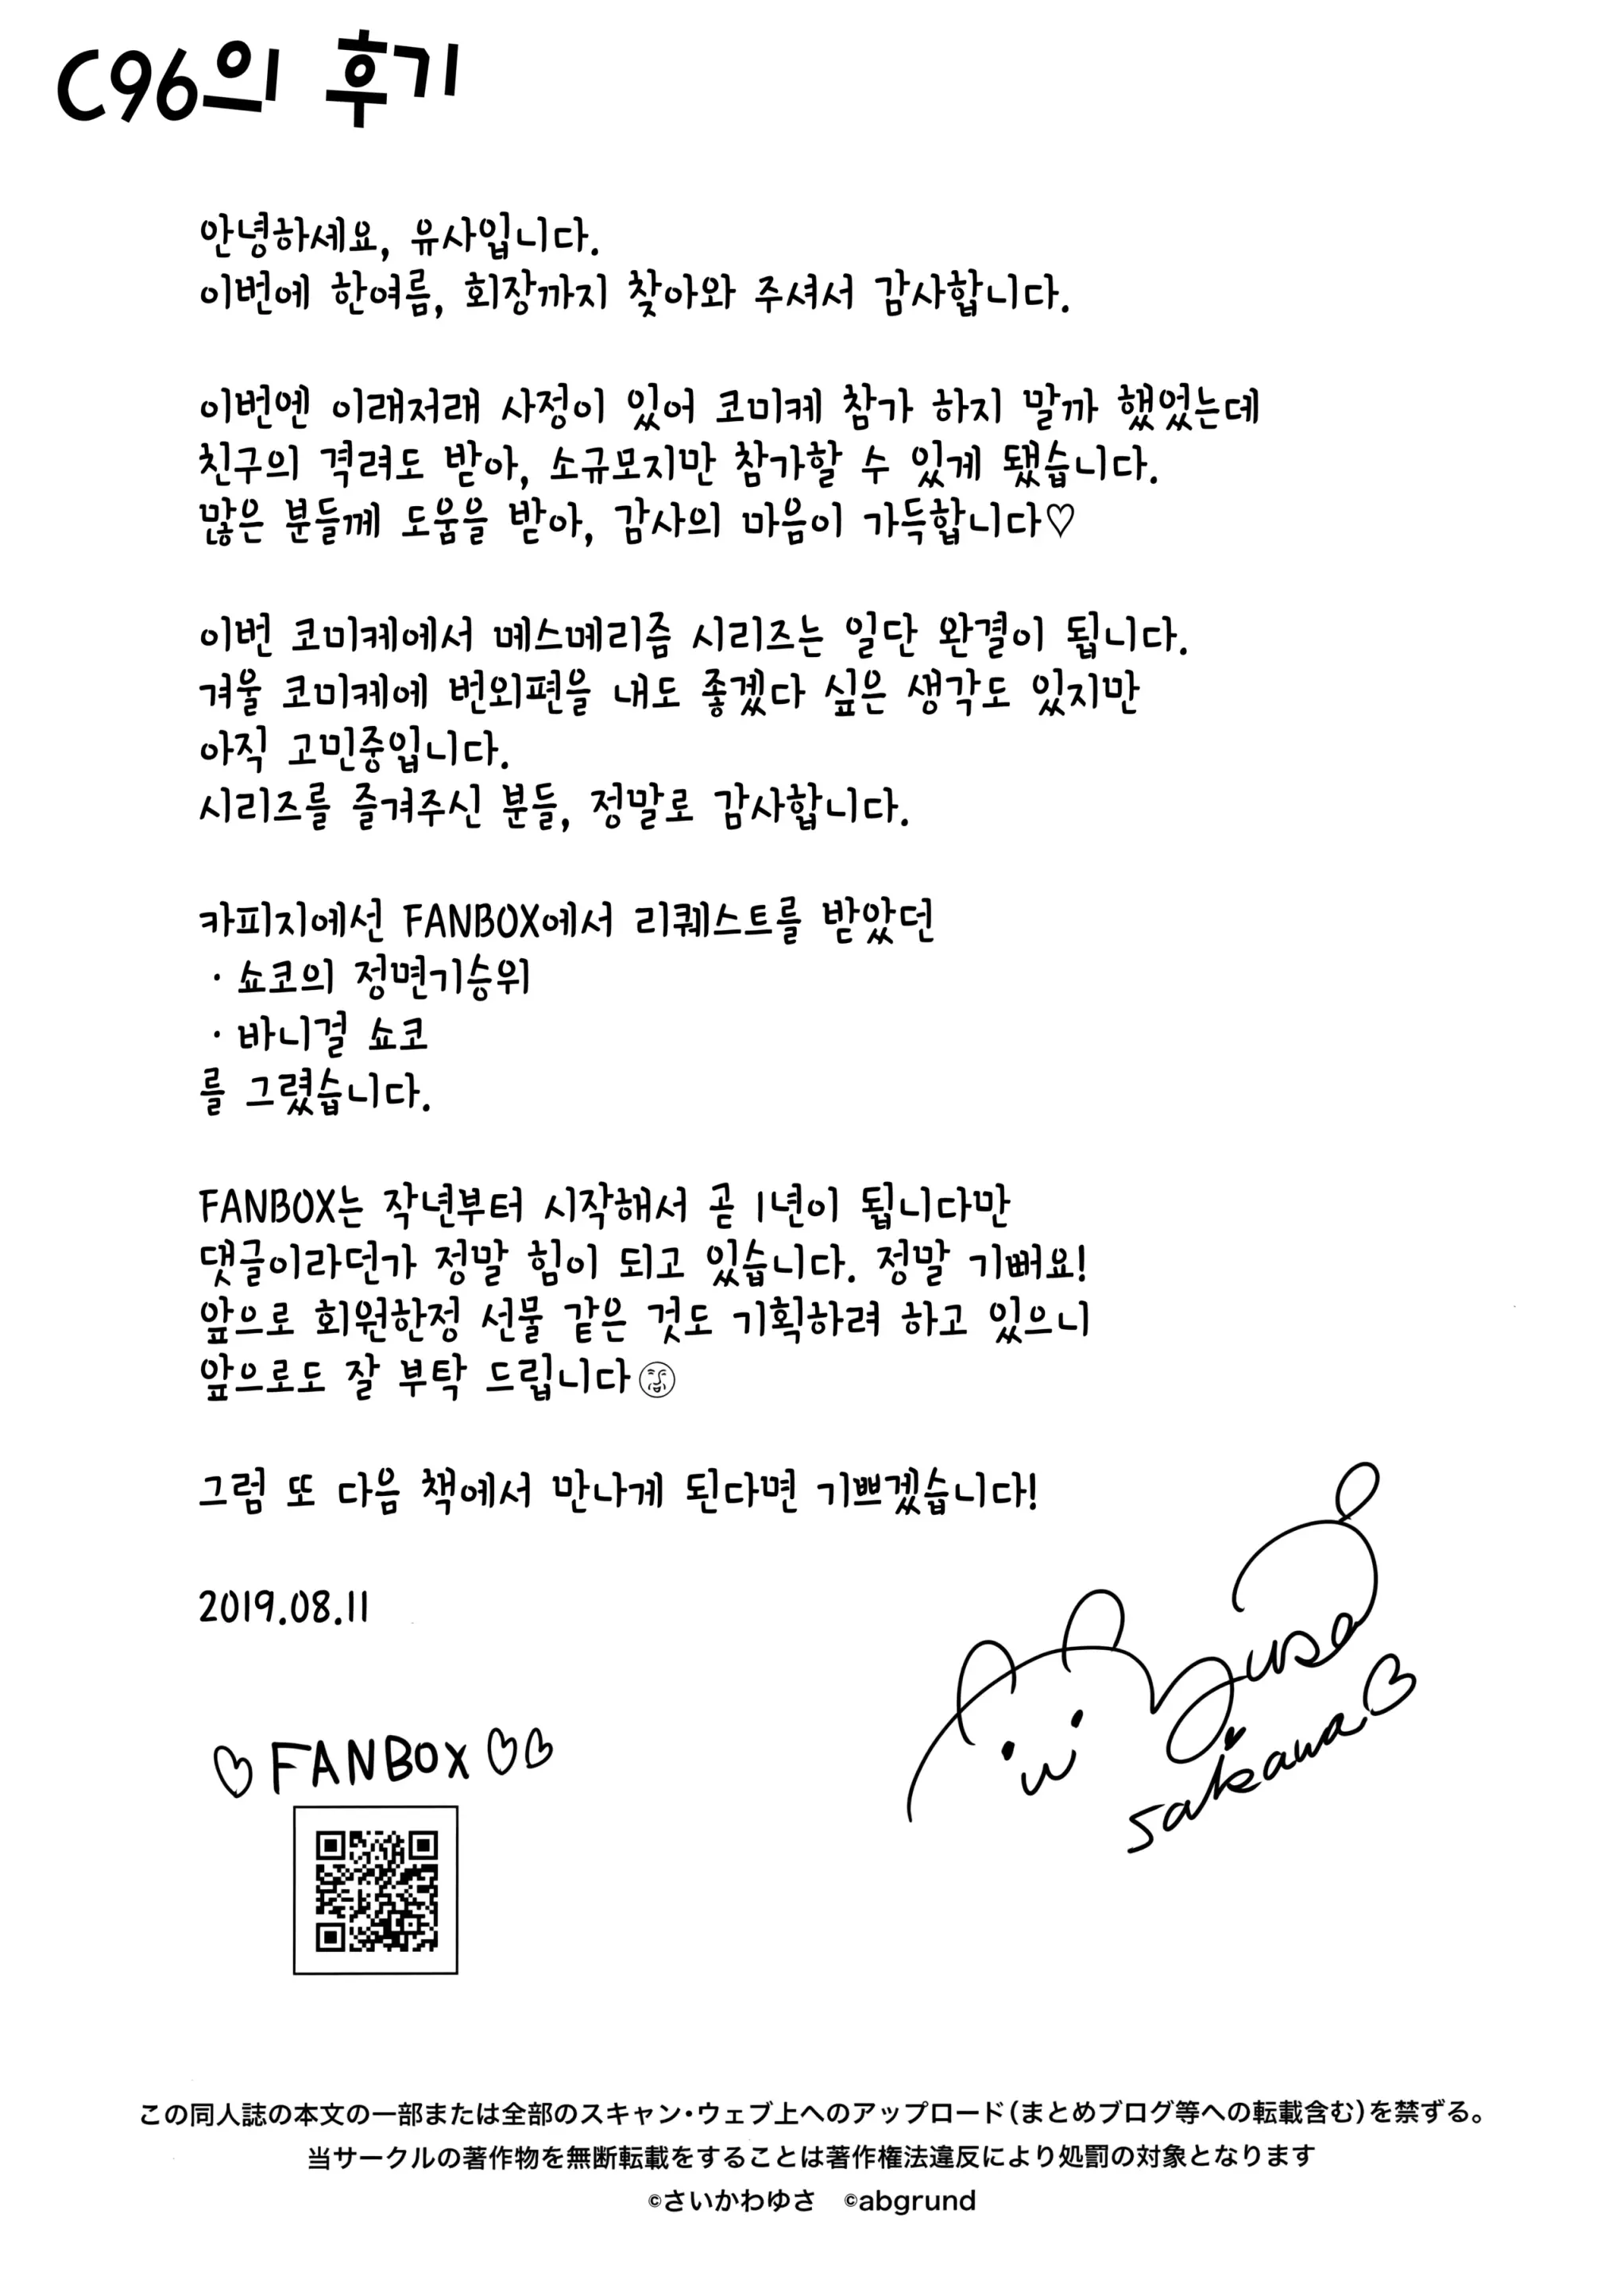 C96의 후기
안녕하세요, 유사입니다.
이번에 한여름, 회장까지 찾아와 주셔서 감사합니다.
이번엔 이래저래 사정이 있어 코미케 참가 하지 말까 했었는데
친구의 격려도 받아, 소규모지만 참가할 수 있게 됐습니다.
많은 분들께 도움을 받아, 감사의 마음이 가득합니다♡
이번 코미케에서 메스메리즘 시리즈는 일단 완결이 됩니다.
겨울 코미케에 번외편을 내도 좋겠다 싶은 생각도 있지만
아직 고민중입니다.
시리즈를 즐겨주신 분들, 정말로 감사합니다.
카피지에선 FANBOX에서 리퀘스트를 받았던
・쇼코의 정면기승위
・바니걸 쇼코
를 그렸습니다.
FANBOX는 작년부터 시작해서 곧 1년이 됩니다만
댓글이라던가 정말 힘이 되고 있습니다. 정말 기뻐요!
앞으로 회원한정 선물 같은 것도 기획하려 하고 있으니
앞으로도 잘 부탁 드립니다
그럼 또 다음 책에서 만나게 된다면 기쁘겠습니다!
2019.08.11
yusa
saikawa♡
♡FANBOX♡♡
この同人誌の本文の一部または全部のスキャン・ウェブ上へのアップロード（まとめブログ等への転載含む）を禁ずる。
当サークルの著作物を無断転載をすることは著作権法違反により処罰の対象となります
©さいかわゆさ ©abgrund